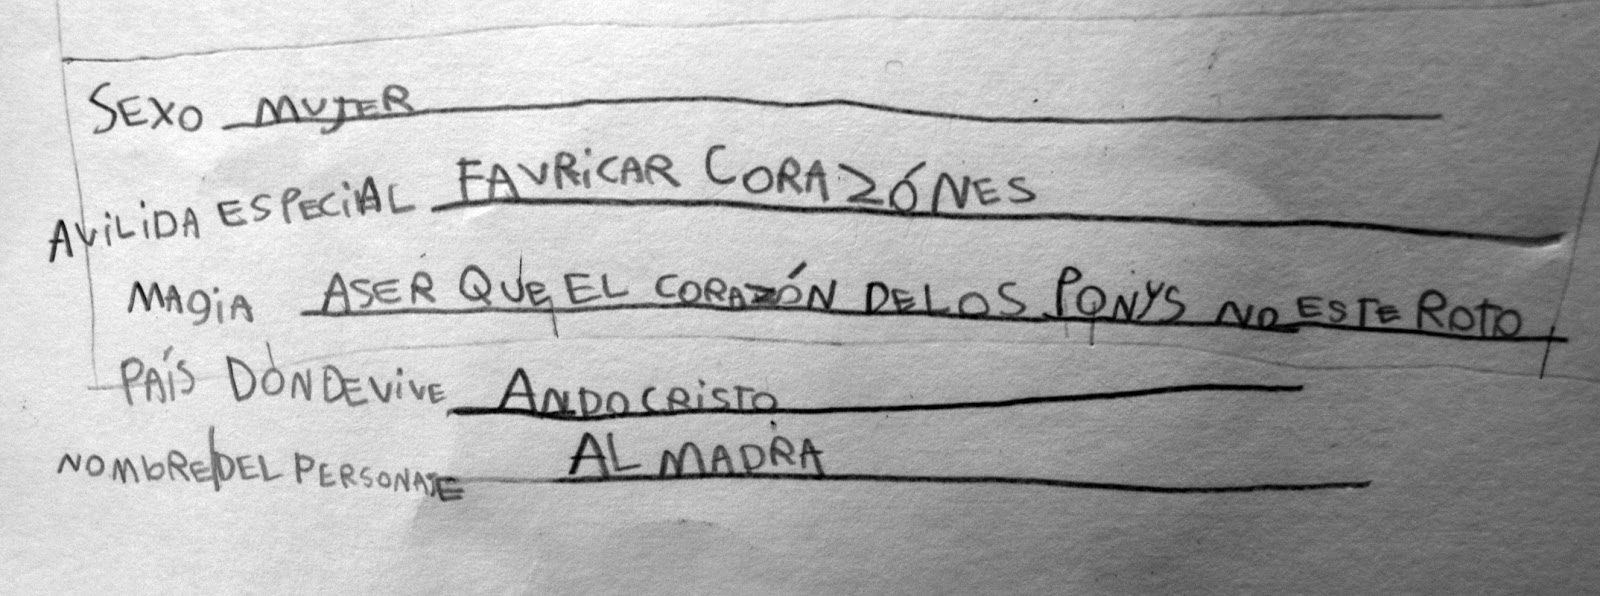 SEXO MUJER
AVILIDA ESPECIAL FAVRICAR CORAZÓNES
MAGIA ASER QUE EL CORAZÓN DE LOS PONYS NO ESTE ROTO
PAÍS DÓNDE VIVE ANDOCRISTO
NOMBRE DEL PERSONAJE ALMADRA